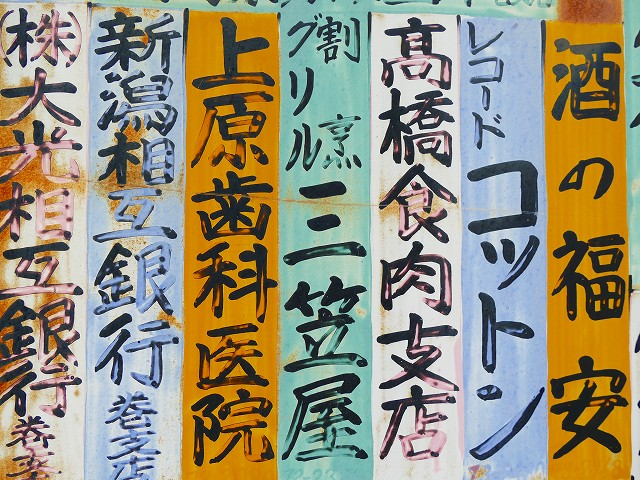 酒の福安
レコード コットン
髙橋食肉支店
割烹 グリル 三笠屋
上原歯科医院
新潟相互銀行 巻支店
(株)大光相互銀行 巻支